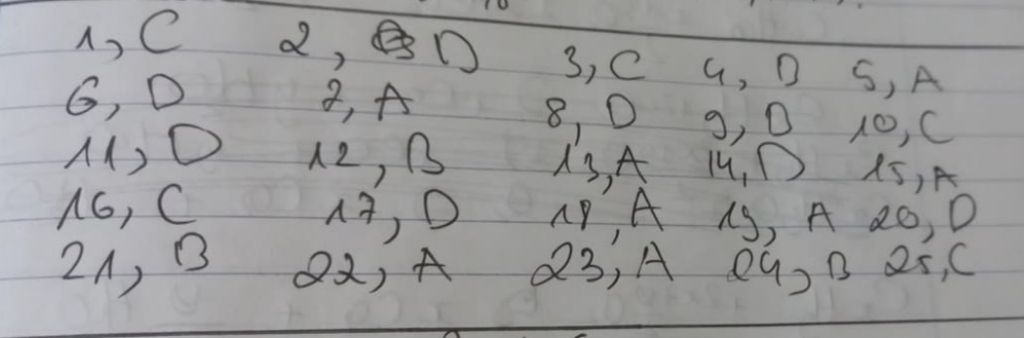 1, C 2, D 3, C 4, B 5, A
6, D 7, A 8, D 9, B 10, C
11, D 12, B 13, A 14, D 15, A
16, C 17, D 18, A 19, A 20, D
21, B 22, A 23, A 24, B 25, C